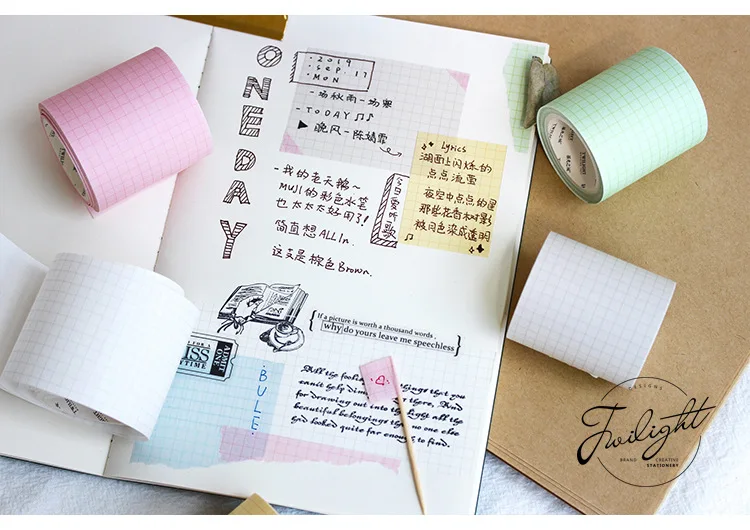 ONE DAY
·2019
·Sep. 17
·MON
-一场秋雨一场寒
-TODAY♫♫
▶晚风-陈婧霏
Lyrics
湖面上闪烁的
点点流萤
夜空中点点的星
那些花香树影
被月色染成透明
今日爱听歌
-我的老天鹅~
MUJI的彩色水笔
也太太太好用了!
简直想ALL In.
这支是棕色Brown.
If a picture is worth a thousand words,
why do yours leave me speechless
ADMIT ONE
BULE.
All the
can't help
for drawing out into
beautiful belongings that no one else
had looked quite far enough to find.
DESIGNS
Twilight
BRAND CREATIVE
STATIONERY